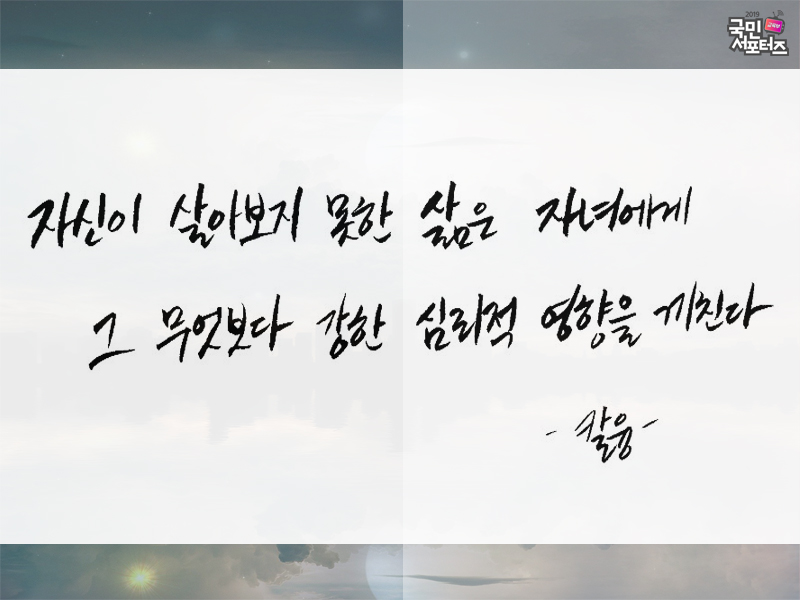 2019
국민
서포터즈
자신이 살아보지 못한 삶은 자녀에게
그 무엇보다 강한 심리적 영향을 끼친다
- 칼융 -